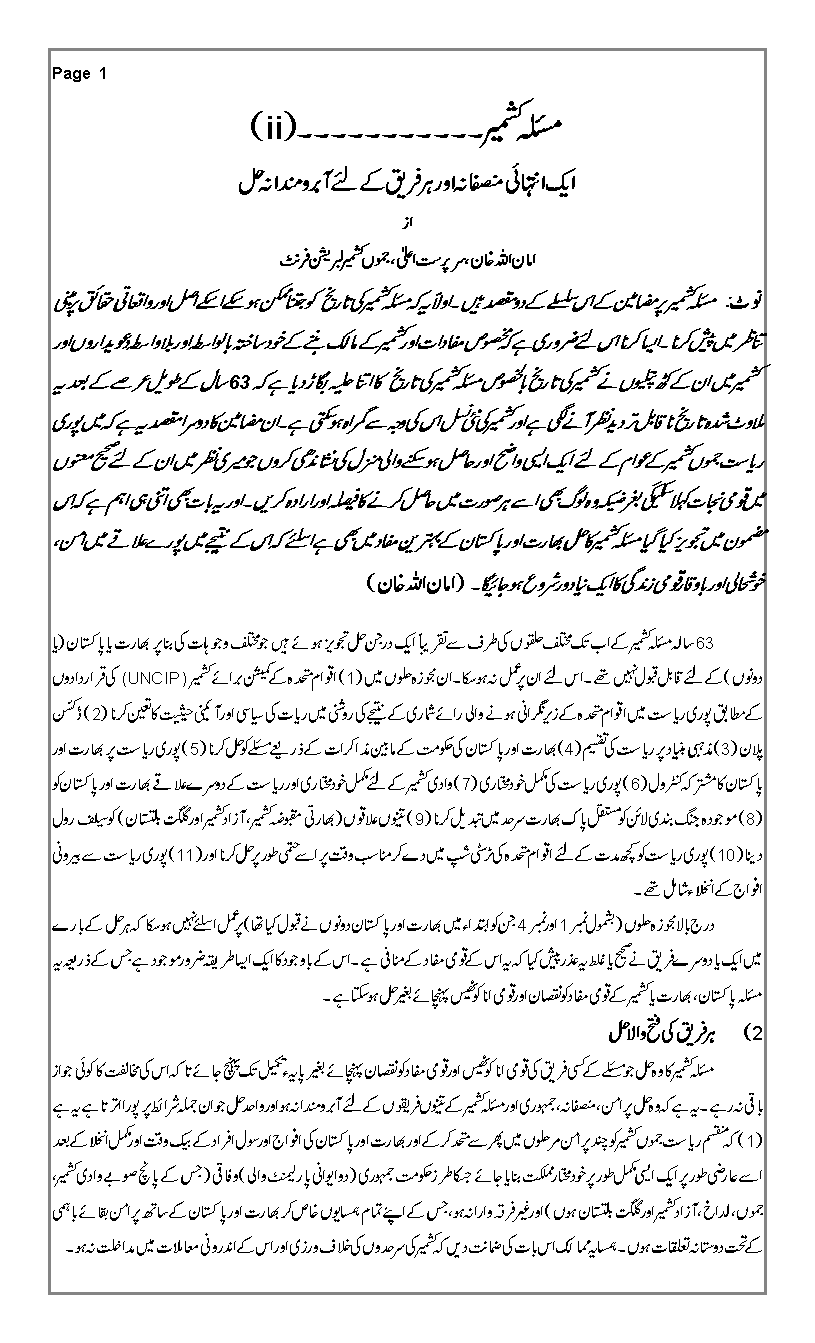 Page 1
مسئلہ کشمیر-----------(ii)
ایک انتہائی منصفانہ اور ہر فریق کے لئے آبرومندانہ حل
از
امان اللہ خان، سرپرست اعلیٰ، جموں کشمیر لبریشن فرنٹ
نوٹ: مسئلہ کشمیر پر مضامین کے اس سلسلے کے دو مقصد ہیں۔ اولاً یہ کہ مسئلہ کشمیر کی تاریخ کو جتنا ممکن ہو سکے اسکے اصل اور واقعاتی حقائق پر مبنی
تناظر میں پیش کرنا۔ ایسا کرنا اس لئے ضروری ہے کہ مخصوص مفادات اور کشمیر کے مالک بننے کے خود ساختہ بالواسطہ اور بلاواسطہ دعویداروں اور
کشمیر میں ان کے کٹھ پتلیوں نے کشمیر کی تاریخ بالخصوص مسئلہ کشمیر کی تاریخ کا اتنا حلیہ بگاڑ دیا ہے کہ 63 سال کے طویل عرصے کے بعد یہ
ملاوٹ شدہ تاریخ ناقابل تردید نظر آنے لگی ہے اور کشمیر کی نئی نسل اس کی وجہ سے گمراہ ہو سکتی ہے۔ ان مضامین کا دوسرا مقصد یہ ہے کہ میں پوری
ریاست جموں کشمیر کے عوام کے لئے ایک ایسی واضح اور حاصل ہو سکنے والی منزل کی نشاندہی کروں جو میری نظر میں ان کے لئے صحیح معنوں
میں قومی نجات کہلا سکیگی بغرضیکہ وہ لوگ بھی اسے ہر صورت میں حاصل کرنے کا فیصلہ اور ارادہ کریں۔ اور یہ بات بھی اتنی ہی اہم ہے کہ اس
مضمون میں تجویز کیا گیا مسئلہ کشمیر کا حل بھارت اور پاکستان کے بہترین مفاد میں بھی ہے اسلئے کہ اس کے نتیجے میں پورے علاقے میں امن،
خوشحالی اور باوقار قومی زندگی کا ایک نیا دور شروع ہو جائیگا۔ (امان اللہ خان)
63 سالہ مسئلہ کشمیر کے اب تک مختلف حلقوں کی طرف سے تقریباً ایک درجن حل تجویز ہوئے ہیں جو مختلف وجوہات کی بنا پر بھارت یا پاکستان (یا
دونوں) کے لئے قابل قبول نہیں تھے۔ اس لئے ان پر عمل نہ ہو سکا۔ ان مجوزہ حلوں میں (1) اقوام متحدہ کے کمیشن برائے کشمیر (UNCIP) کی قراردادوں
کے مطابق پوری ریاست میں اقوام متحدہ کے زیر نگرانی ہونے والی رائے شماری کے نتیجے کی روشنی میں ریات کی سیاسی اور آئینی حیثیت کا تعین کرنا (2) ڈکسن
پلان (3) مذہبی بنیاد پر ریاست کی تقسیم (4) بھارت اور پاکستان کی حکومت کے مابین مذاکرات کے ذریعے مسئلے کو حل کرنا (5) پوری ریاست پر بھارت اور
پاکستان کا مشترکہ کنٹرول (6) پوری ریاست کی مکمل خودمختاری (7) وادی کشمیر کے لئے مکمل خودمختاری اور ریاست کے دوسرے علاقے بھارت اور پاکستان کو
(8) موجودہ جنگ بندی لائن کو مستقل پاک بھارت سرحد میں تبدیل کرنا (9) تینوں علاقوں (بھارتی مقبوضہ کشمیر، آزاد کشمیر اور گلگت بلتستان) کو سیلف رول
دینا (10) پوری ریاست کو کچھ مدت کے لئے اقوام متحدہ کی ٹرسٹی شپ میں دے کر مناسب وقت پر اسے حتمی طور پر حل کرنا اور (11) پوری ریاست سے بیرونی
افواج کے انخلاء شامل تھے۔
درج بالا مجوزہ حلوں (بشمول نمبر 1 اور نمبر 4 جن کو ابتداء میں بھارت اور پاکستان دونوں نے قبول کیا تھا) پر عمل اسلئے نہیں ہو سکا کہ ہر حل کے بارے
میں ایک یا دوسرے فریق نے صحیح یا غلط یہ عذر پیش کیا کہ یہ اس کے قومی مفاد کے منافی ہے۔ اس کے باوجود کا ایک ایسا طریقہ ضرور موجود ہے جس کے ذریعہ یہ
مسئلہ پاکستان، بھارت یا کشمیر کے قومی مفاد کو نقصان اور قومی انا کو ٹھیس پہنچائے بغیر حل ہو سکتا ہے۔
2) ہر فریق کی فتح والا حل
مسئلہ کشمیر کا وہ حل جو مسئلے کے کسی فریق کی قومی انا کو ٹھیس اور قومی مفاد کو نقصان پہنچائے بغیر پایہء تکمیل تک پہنچ جائے تا کہ اس کی مخالفت کا کوئی جواز
باقی نہ رہے۔ یہ ہے کہ وہ حل پرامن، منصفانہ، جمہوری اور مسئلہ کشمیر کے تینوں فریقوں کے لئے آبرومندانہ ہو اور واحد حل جو ان جملہ شرائط پر پورا اترتا ہے یہ ہے
(1) کہ منقسم ریاست جموں کشمیر کو چند پر امن مرحلوں میں پھر سے متحد کر کے اور بھارت اور پاکستان کی افواج اور سول افراد کے بیک وقت اور مکمل انخلا کے بعد
اسے عارضی طور پر ایک ایسی مکمل طور پر خودمختار مملکت بنایا جائے جسکا طرز حکومت جمہوری (دو ایوانی پارلیمنٹ والی) وفاقی (جس کے پانچ صوبے وادی کشمیر،
جموں، لداخ، آزاد کشمیر اور گلگت بلتستان ہوں) اور غیر فرقہ وارانہ ہو، جس کے اپنے تمام ہمسایوں خاص کر بھارت اور پاکستان کے ساتھ پر امن بقائے باہمی
کے تحت دوستانہ تعلقات ہوں۔ ہمسایہ ممالک اس بات کی ضمانت دیں کہ کشمیر کی سرحدوں کی خلاف ورزی اور اس کے اندرونی معاملات میں مداخلت نہ ہو۔